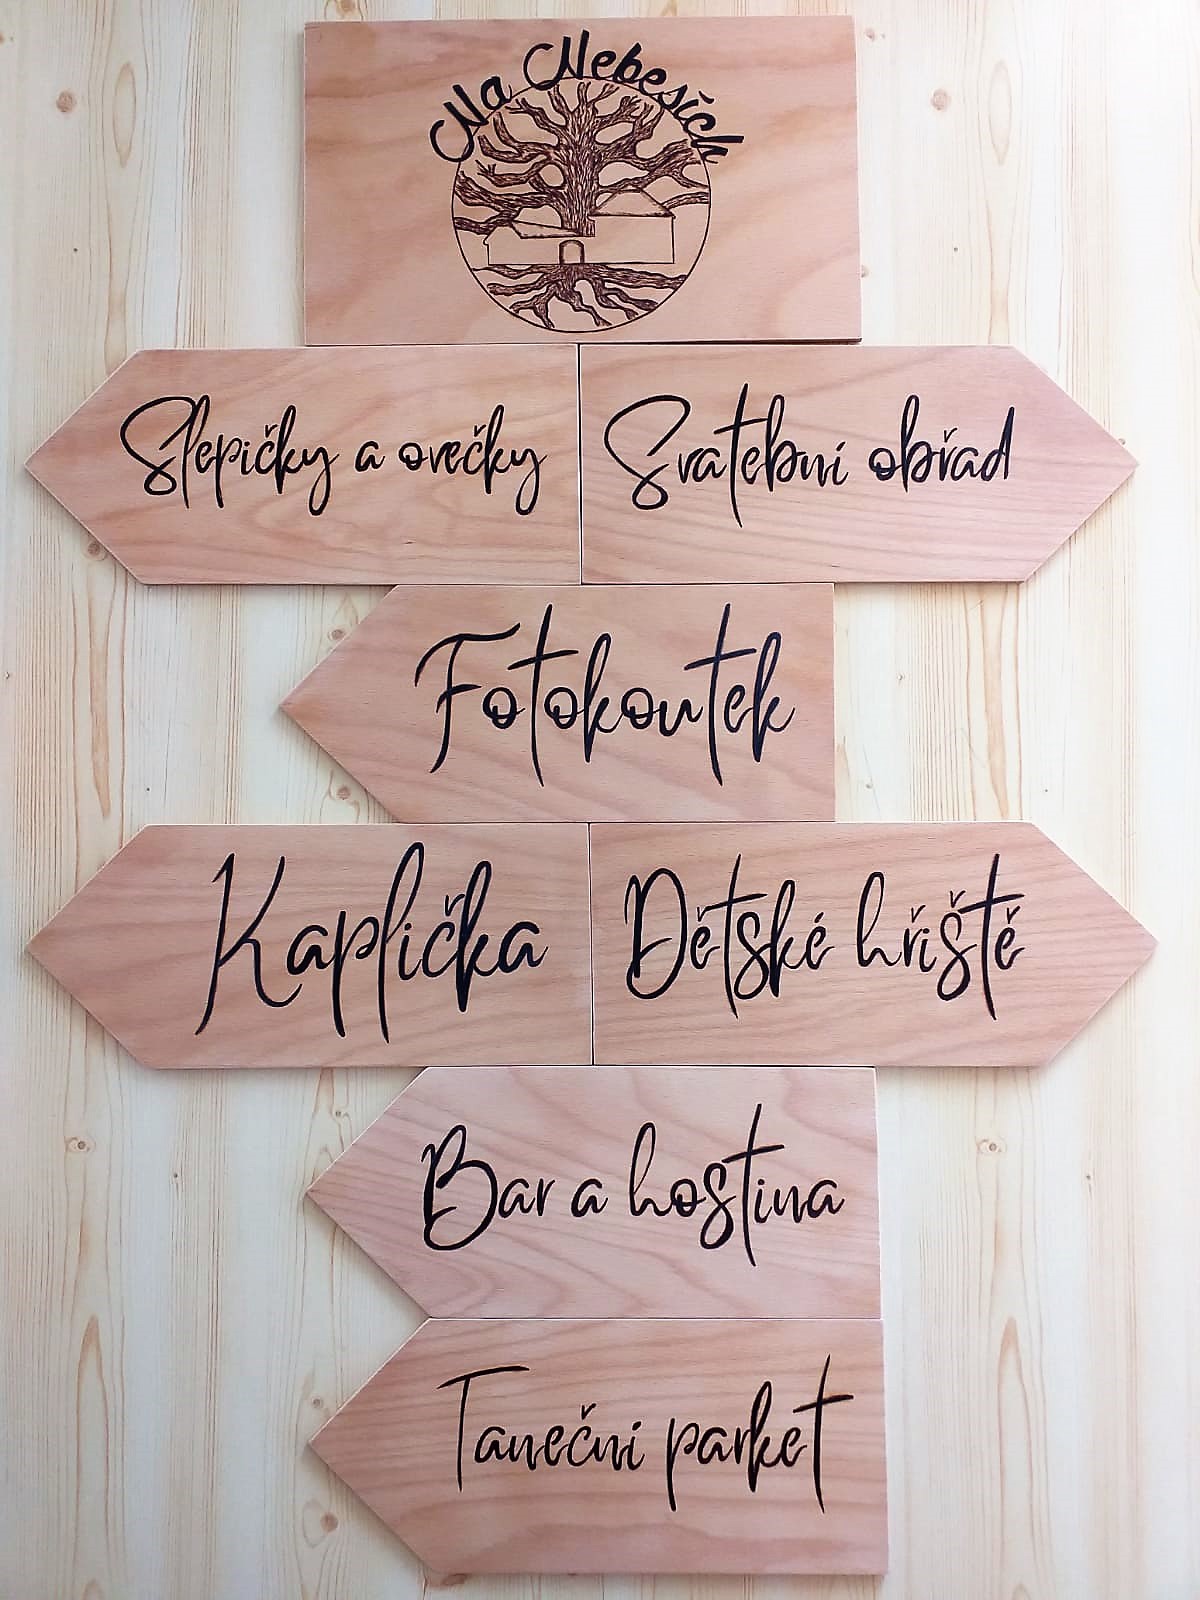 Na Nebesích
Slepičky a ovečky
Svatební obřad
Fotokoutek
Kaplička
Dětské hřiště
Bar a hostina
Taneční parket